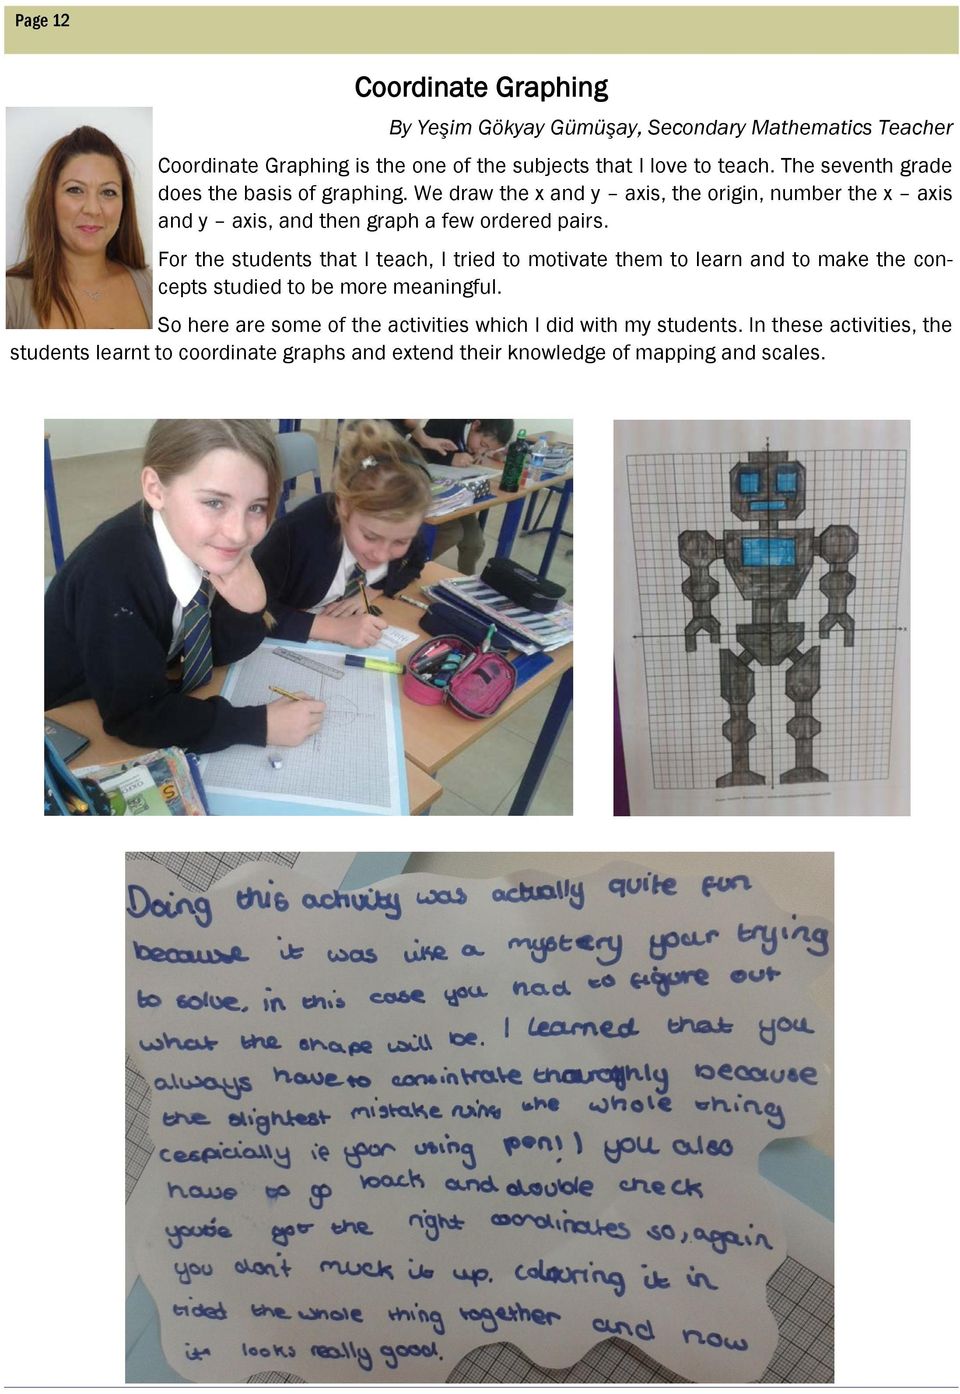 Page 12
Coordinate Graphing
By Yeşim Gökyay Gümüşay, Secondary Mathematics Teacher
Coordinate Graphing is the one of the subjects that I love to teach. The seventh grade
does the basis of graphing. We draw the x and y – axis, the origin, number the x – axis
and y – axis, and then graph a few ordered pairs.
For the students that I teach, I tried to motivate them to learn and to make the con-
cepts studied to be more meaningful.
So here are some of the activities which I did with my students. In these activities, the
students learnt to coordinate graphs and extend their knowledge of mapping and scales.
Y
x
Doing this activity was actually quite fun
because it was like a mystery your trying
to solve, in this case you had to figure out
what the shape will be. I learned that you
always have to consintrate thouroghly because
the slightest mistake ruins the whole thing
(espicially if your using pen!) you also
have to go back and double check
you've got the right coordinates so, again
you don't muck it up. Colouring it in
tided the whole thing together and now
it looks really good.